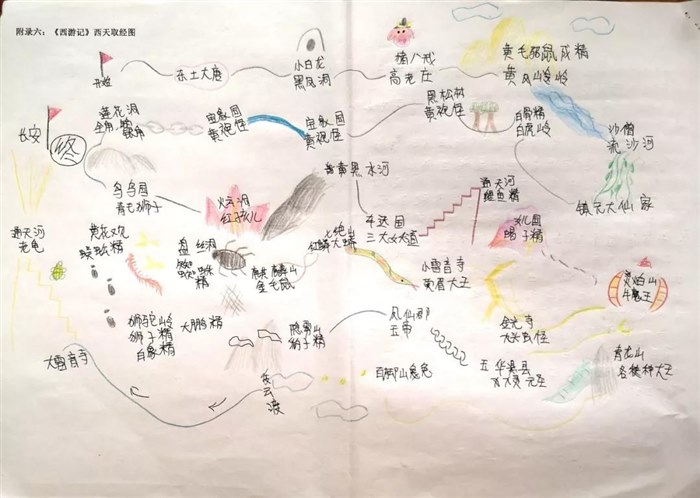 附录六：《西游记》西天取经图
开始
东土大唐
小白龙
黑风洞
猪八戒
高老庄
黄毛貂鼠成精
黄风岭
长安
终
莲花洞
金角
银角
宝象国
黄袍怪
宝象国
黄袍怪
黑松林
黄袍怪
白骨精
白虎岭
沙僧
流沙河
乌鸡国
青毛狮子
火云洞
红孩儿
黑水河
车迟国
三大妖道
通天河
鲤鱼精
女儿国
蝎子精
镇元大仙家
通天河
老龟
黄花观
蜈蚣精
盘丝洞
蜘蛛
精
麒麟山
金毛犼
七绝山
红鳞大蟒
小雷音寺
黄眉大王
火焰山
牛魔王
狮驼岭
狮子精
白象精
大鹏精
隐雾山
豹子精
凤仙郡
五帝
金光寺
大雷音寺
凌云渡
玉华县
青龙山